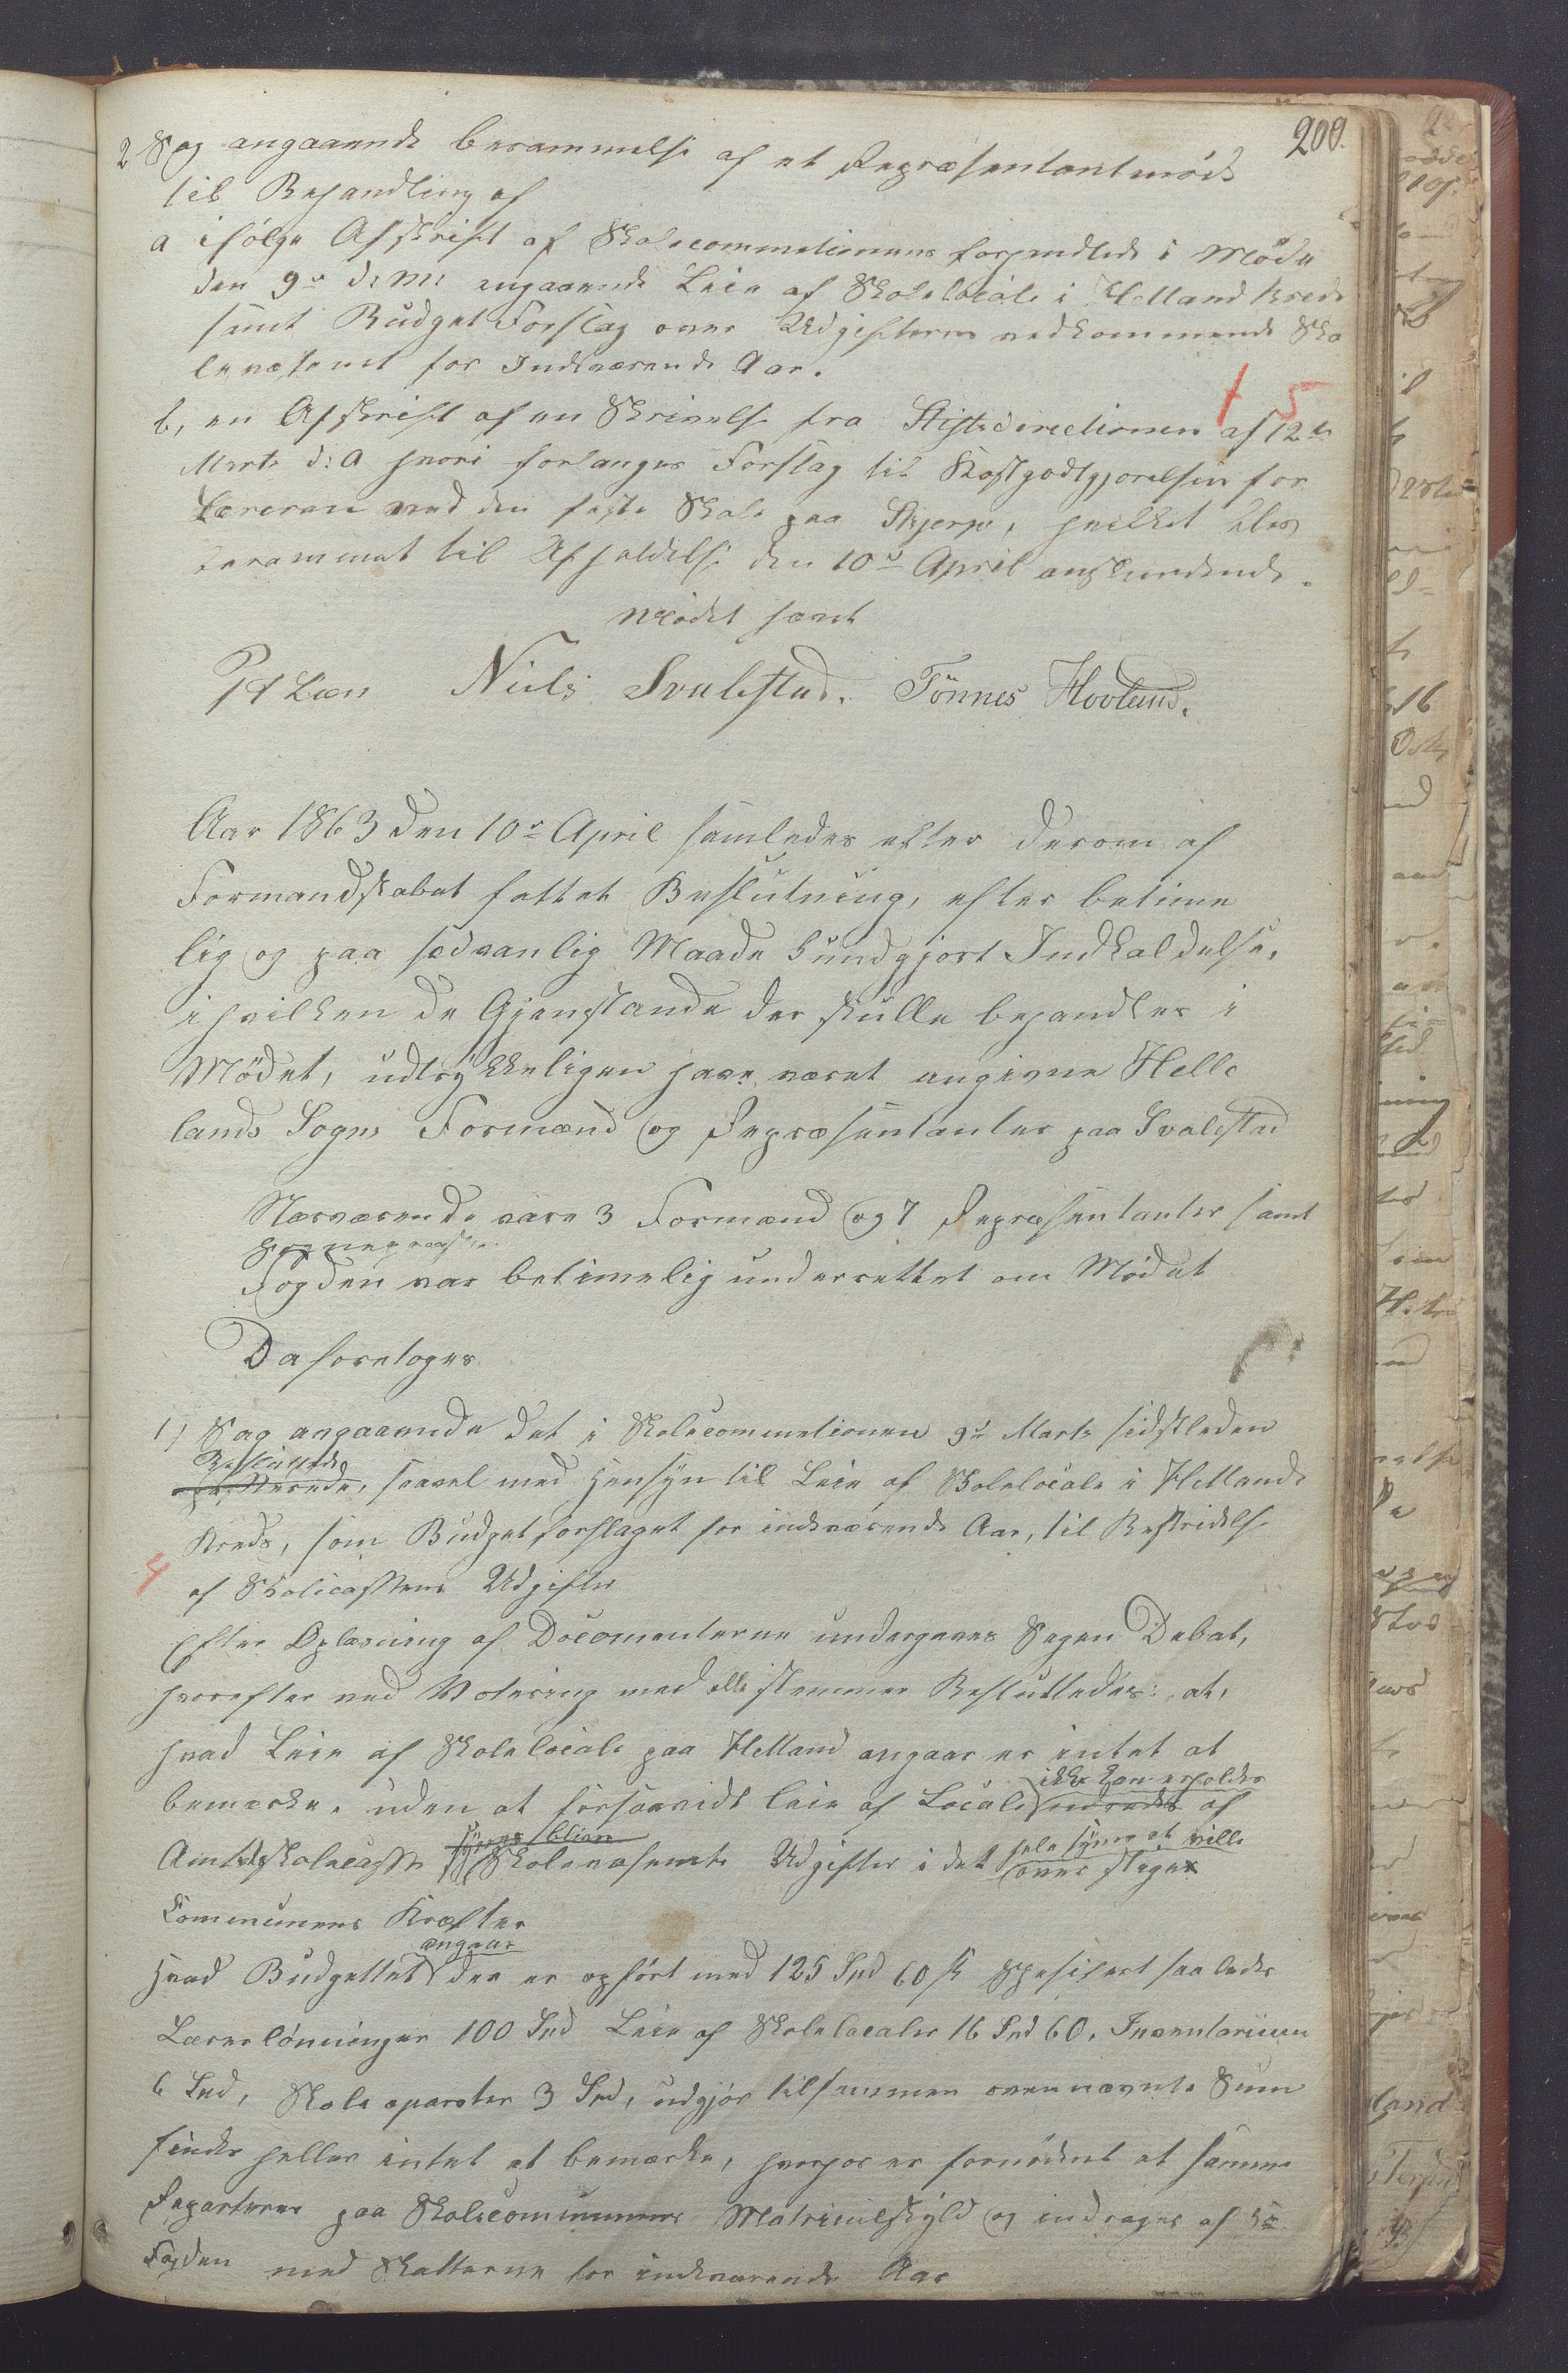 200.
2 Sag angaaende berammelse af et Repræsentantmöde
til Behandling af
a ifölge Afskrift af Skolecommetionens forhandlede i Möde
den 9de d: M: angaaende Leie af Skolelocale i Helland Kreds
samt Budget Forslag over Udgifterne vedkommende Sko
levæsenet for Indeværende Aar.
b, en Afskrift af en Skrivelse fra Stiftsdirectionen af 12te
Marts d: A hvori forlanges Forslag til Kostgodtgjorelsen for
Læreren ved den faste Skole paa Skjerpe, hvilket blev
berammet til Afholdelse den 10de April anstundende.
Mödet hævet
Niels Svalestad. Tönnes Hovland.
Aar 1863 den 10de April samledes efter derom af
Formandskabet fattet Beslutning, efter betime
lig og paa sædvanlig Maade kundgjort Indkaldelse,
i hvilken de Gjenstande der skulle behandles i
Mödet, udtrykkeligen have været angivne Helle
lands Sogns Formænd og Repræsentanter paa Svalestad
Nærværende vare 3 Formænd og 7 Repræsentanter samt
Fogden var betimelig underrettet om Mödet
Da foretoges
1) Sag angaaende det i Skolecommetionen 9de Marts sidstleden
Besluttede
saavel med Hensyn til Leie af Skolelocale i Hellands
Kreds, som Budgetforslaget for indeværende Aar, til Bestridelse
4
af Skolecassens Udgifter
Efter Oplæsning af Documenterne undergaves Sagen Debat,
hvorefter ved Votering med alle stemmer Besluttedes: at,
hvad Leie af Skolelocale paa Helland angaar er intet at
ikke kan erholdes
bemærke, uden at forsaavidt leie af Locale af
synes bliver hele synes at ville
Amtsskolecassen Skolevæsenets Udgifter i det overstige
Communens Kræfter
angaar
Hvad Budgettet der er opfört med 125 Spd 60 s Spesifiert saaledes
Lærerlönninger 100 Spd Leie af Skolelocaler 16 Spd 60, Inventarium
6 Spd, Skole aparater 3 Spd, udgjör tilsammen ovennævnte Sum
findes heller intet at bemærke, hvorfor er fornödent at samme
Reparteres paa Skolecommunens Matriculskyld og inddrages af Hr
Fogden med Skatterne for indeværende Aar